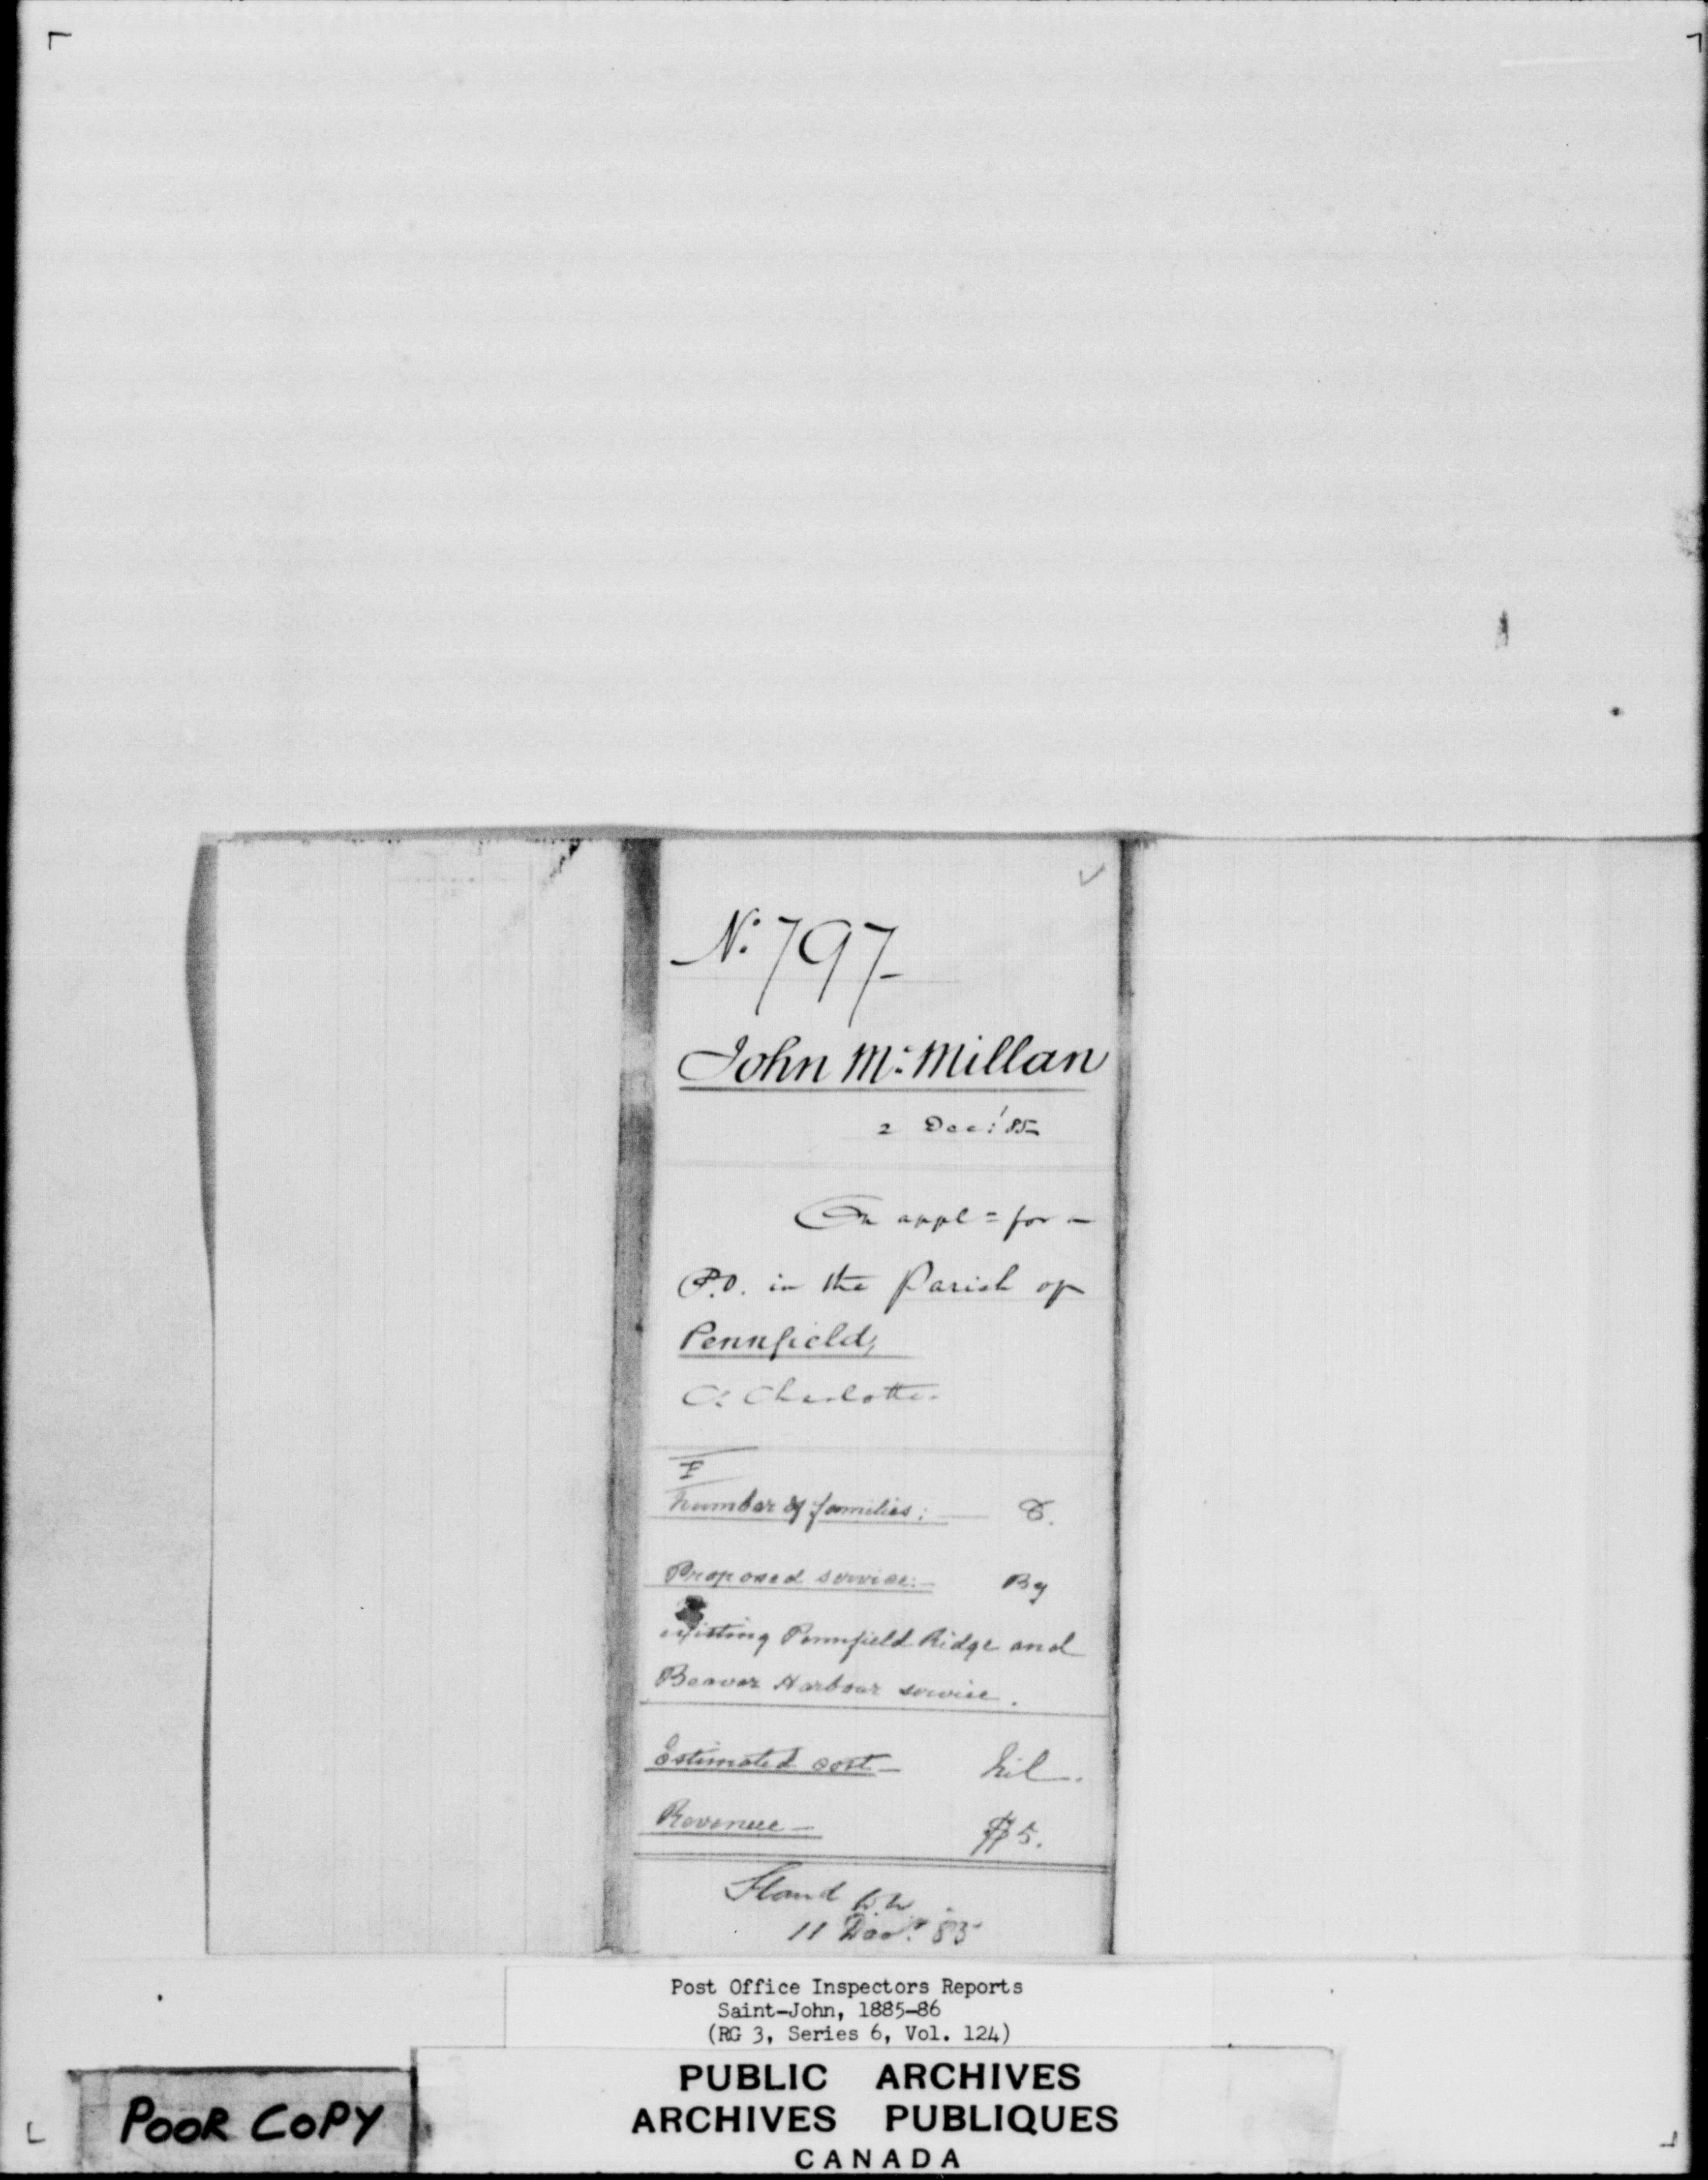 No. 797
John Mc.Millan
2 Dec: '85
On appl= for a
P.O. in the Parish of
Pennfield,
Co. Charlotte.
Number of families: 8.
Proposed service:— By
existing Pennfield Ridge and
Beaver Harbour service.
Estimated cost— Nil.
Revenue— $5.
Stand
11 Dec. 85
Post Office Inspectors Reports
Saint-John, 1885-86
(RG 3, Series 6, Vol. 124)
PUBLIC ARCHIVES
ARCHIVES PUBLIQUES
CANADA
POOR COPY